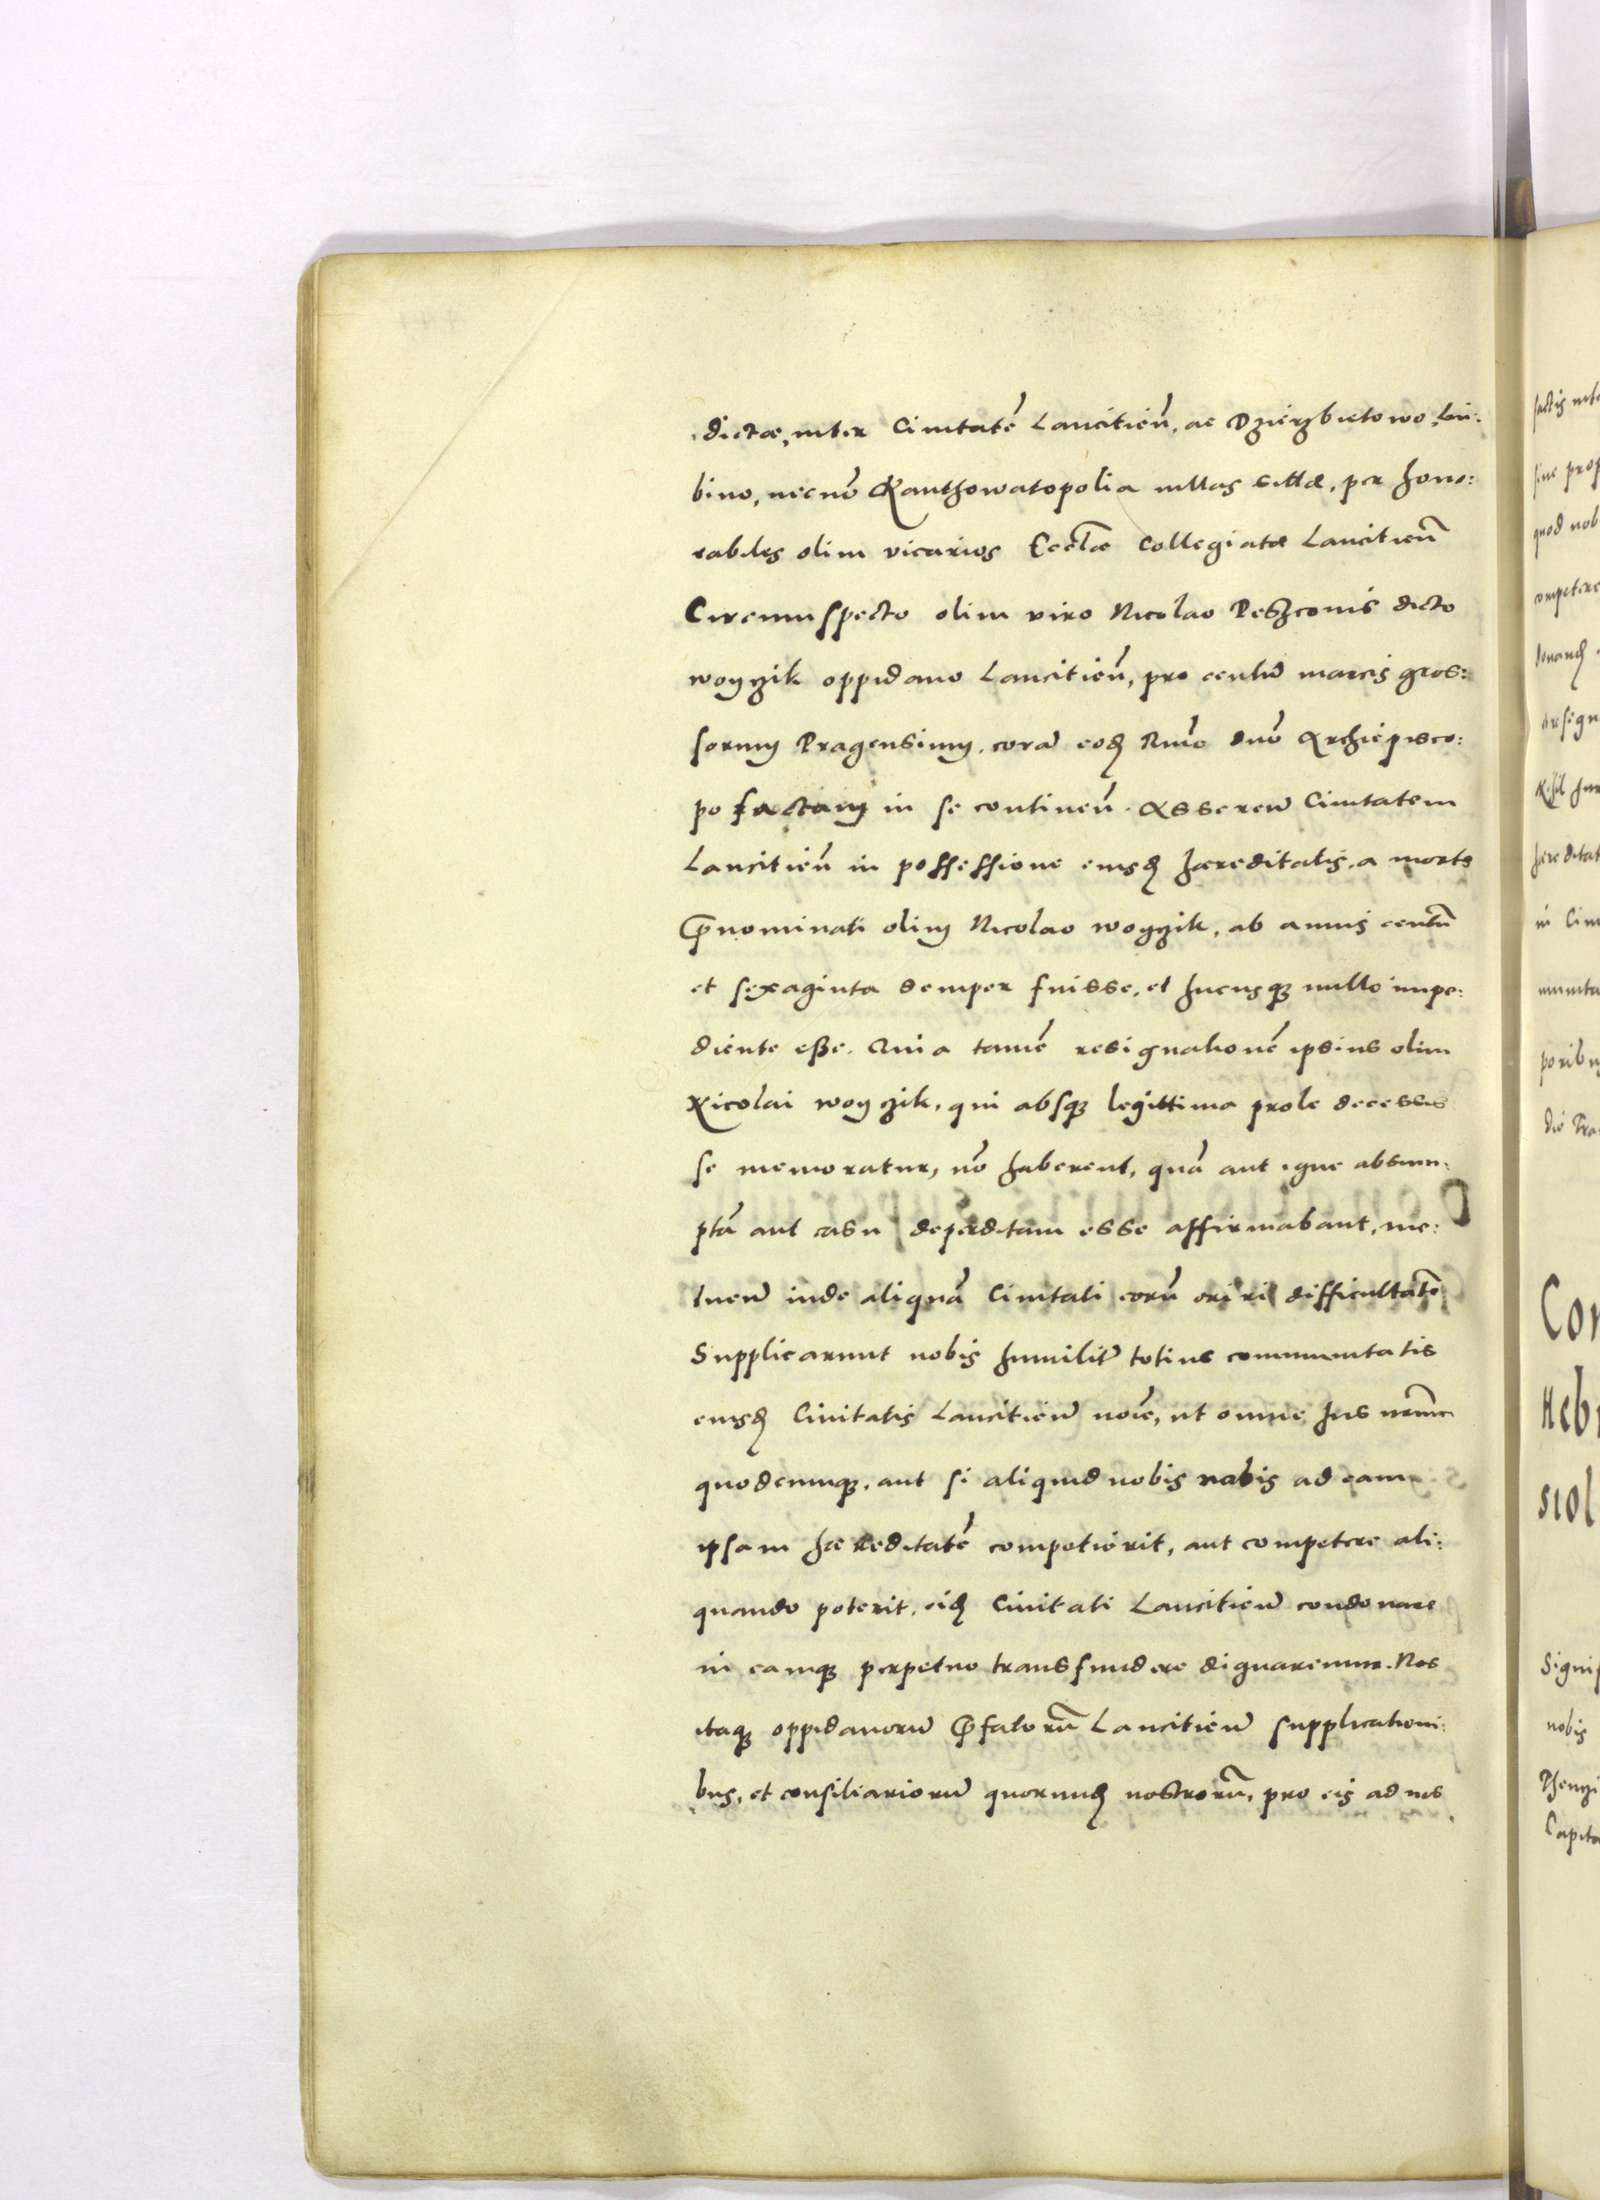 dictæ, inter Ciuitatẽ Lancitieñ, ac Dzierzbietowo, Lu:
bino, necnõ Kanthowatopolia villas sittæ, per hono:
rabiles olim vicarios Ecclæ Collegiatæ Lancitieñ
Circumspecto olim viro Nicolao Peszconis dicto
woyzik oppidano Lancitieñ, pro centũ marcis gros:
sorum Pragensium, corã eodẽ Rmõ dnõ Archiepisco:
po factam in se contineñ. Assereñ Ciuitatem
Lancitieñ in possessione eiusdẽ hæreditatis, a morte
p̃nominati olim Nicolao woyzik, ab annis centũ
et sexaginta semper fuisse, et hucusq; nullo impe:
diente eße. Quia tamẽ resignationẽ ipsius olim
Nicolai woyzik, qui absq; legittima prole decessis
se memoratur, nõ haberent, quã aut igne absum:
ptã aut casu deperditam esse affirmabant, me:
tueñ inde aliquã Ciuitati eorũ oriri difficultatẽ
Supplicarunt nobis humilit̃ totius communitatis
eiusdẽ Ciuitatis Lancitieñ noĩe, ut omne Ius nr̃um
quodcunq;, aut si aliquid nobis nobis ad eam
ipsam hæreditatẽ competierit, aut competere ali:
quando poterit, eidẽ Ciuitati Lancitieñ condonare
in eamq; perpetuo transfundere dignaremur. Nos
itaq; oppidanorũ p̃fatorũ Lancitieñ supplicationi:
bus, et consiliariorũ quorundẽ nostrorũ, pro eis ad nos